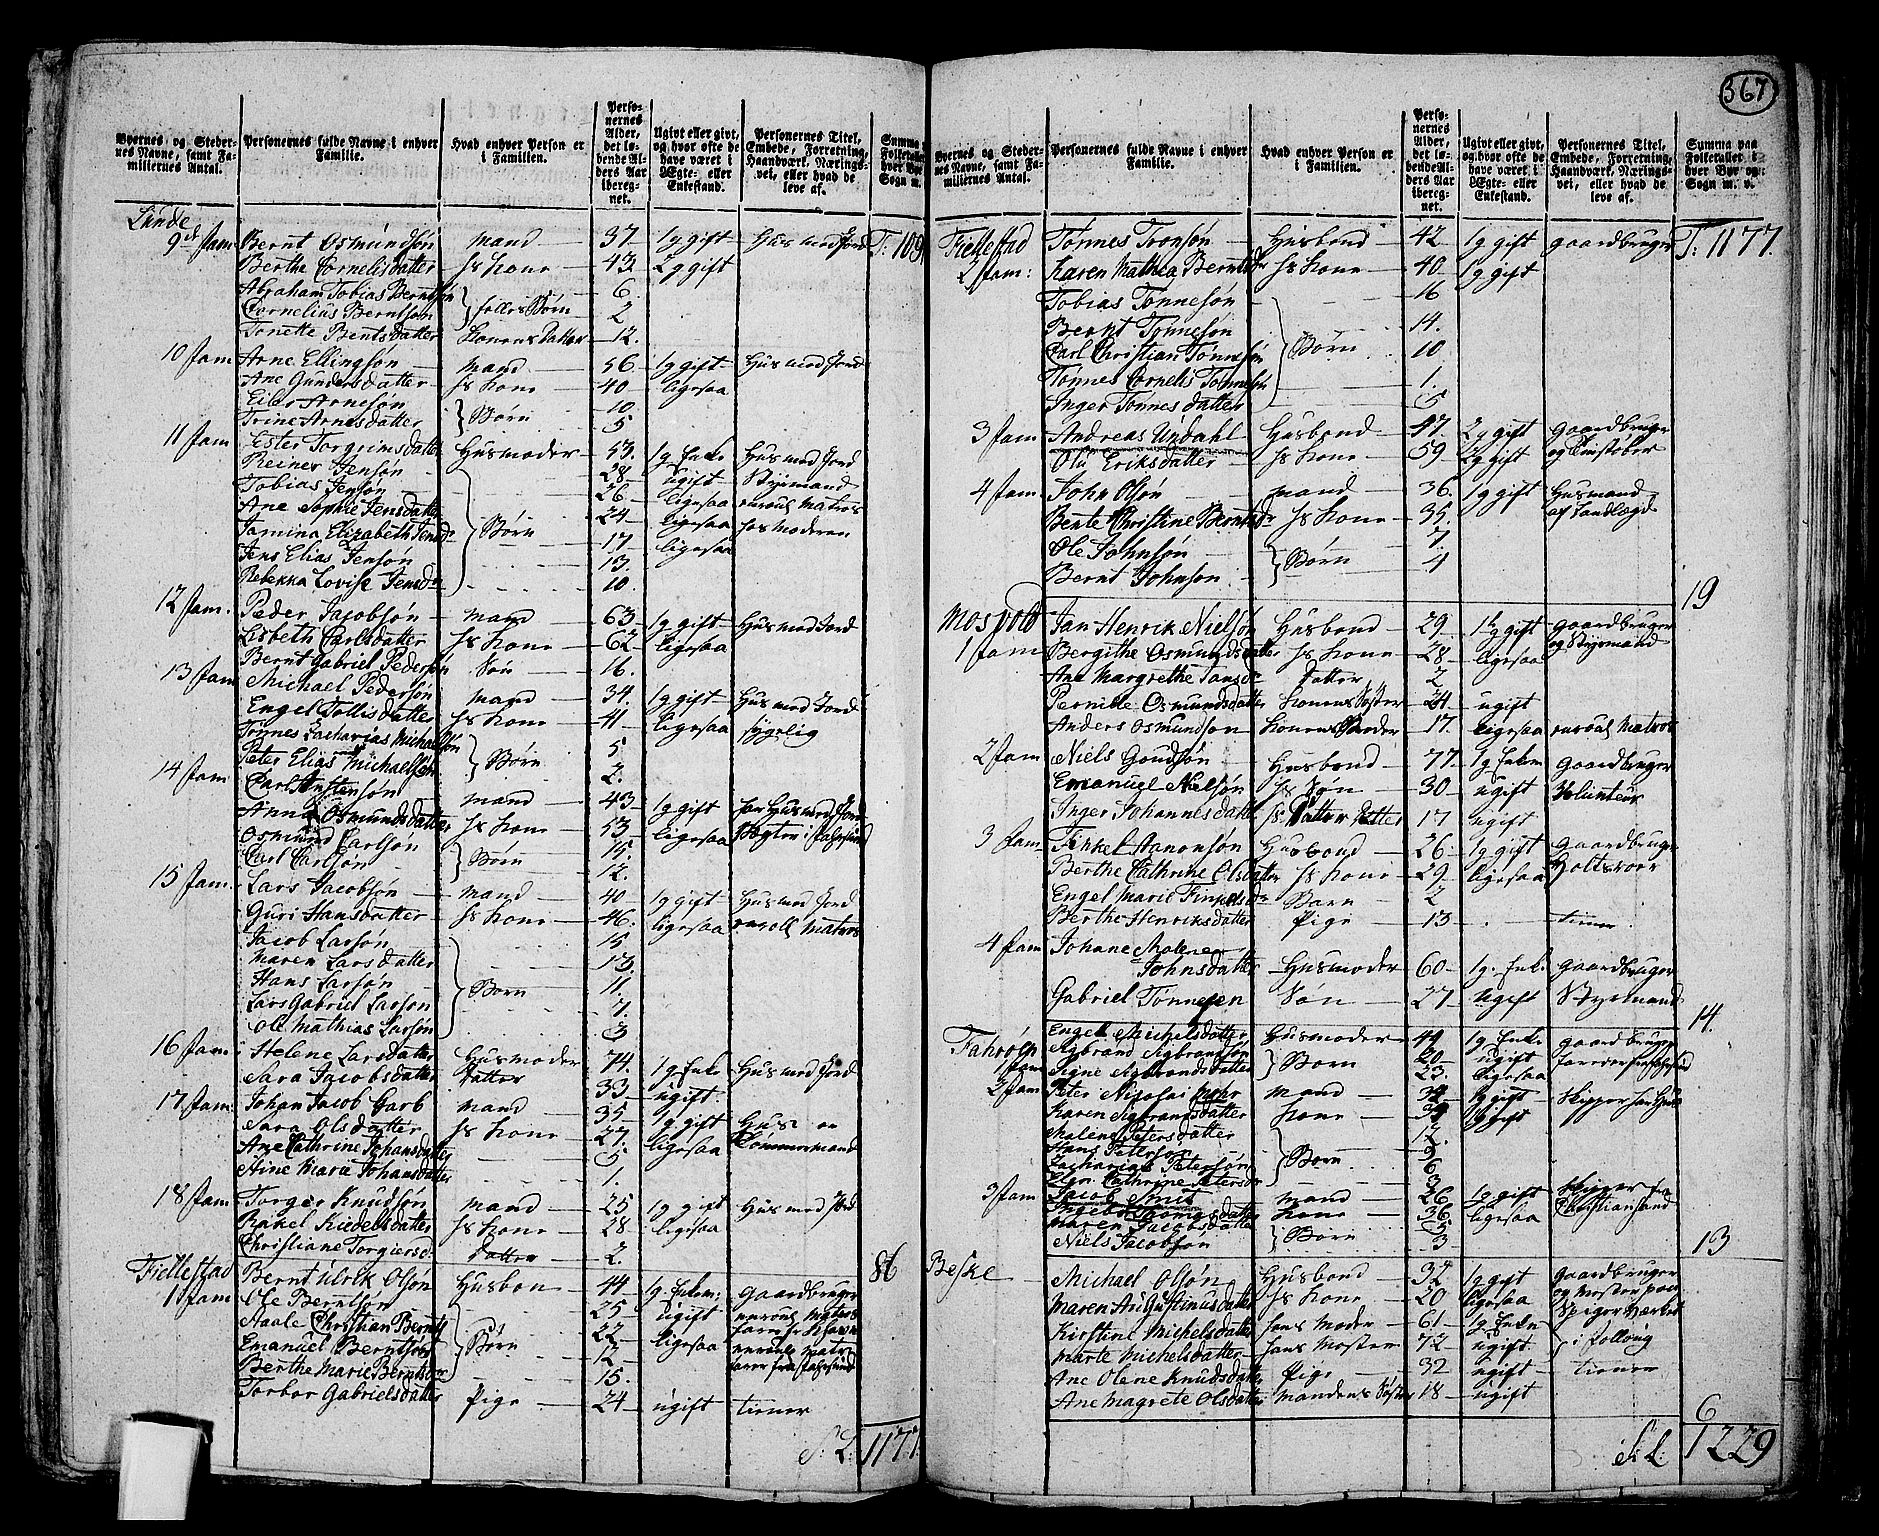 367
Byernes og Steder-
nes Navne, samt Fa-
miliernes Antal.
Personernes fulde Navne i enhver
Familie.
Hvad enhver Person er
i Familien.
Perso-
nernes
Alder,
det lø-
bende Al-
ders Aar
ibereg-
net.
Ugivt eller givt,
og hvor ofte de
have været i
Ægte- eller
Enkestand.
Personernes Titel,
Embede, Forretning,
Haandværk, Nærings-
vei, eller hvad de
leve af.
Summa
Folketallet
hver By
Sogn m.
Linde
9de fam Bernt Osmundsøn mand 37 1g gift Hus med Jord T. 109
Berthe Cornelisdatter hs kone 43 2g gift
Abraham Tobias Berntsøn 6
Cornelius Berntsøn 2 Børn
Tonette Bentsdatter Konens datter 12.
10 fam Arne Ellingsøn mand 56 1g gift Hus med Jord
Ane Gundersdatter hs kone 40 ligesaa
Elias Arnesøn 10 Børn
Trine Arnesdatter 5
11 fam Ester Torgrimsdatter Husmoder 53. 1g Enke Hus med Jord
Reiner Jensøn 28 ugift Styrmand
Tobias Jensøn 26 ligesaa enroul Matros
Ane Sophie Jensdatter 24 ligesaa hos Moderen
Jamina Elizabeth Jensdr Børn 17 ligesaa
Jens Elias Jensøn 13.
Rebekka Lovise Jensdr 10.
12 fam. Peder Jacobsøn mand 63 1g gift Hus med Jord
Lisbeth Carlsdatter hs kone 62 ligesaa
Bernt Gabriel Pedersøn Søn 16.
13 fam Michael Pedersøn mand 34. 1g gift Hus med Jord
Engel Tollisdatter hs kone 41 ligesaa sygelig
Tønnes Zacharias Michaelsøn 5 Børn
Peter Elias Michaelsøn 2.
14 fam Carl mand 43 1g gift har Hus med Jord
Anna Osmundsdatter hs kone 53 ligesaa
Osmund Carlsøn 15. Børn
Carl Carlsøn 12.
15 fam. Lars Jacobsøn mand 40 1g gift Hus med Jord
Guri Hansdatter hs kone 46. ligesaa enroll Matros
Jacob Larsøn 15
Maren Larsdatter 13.
Hans Larsøn Børn 11.
Lars Gabriel Larsøn 7.
Ole Mathias Larsøn 3
16 fam. Helene Larsdatter Husmoder 74. 1g Enke Hus med Jord
Sara Jacobsdatter datter 33 ugift.
17 fam. Johan Jacob Garb mand 35 1g gift Hus
Sara Olsdatter hs kone 27. ligesaa
Ane Cathrine Johansdatter 5
Marie Johansdatter 1.
18 fam Torger Knudsøn mand 25 1g gift Hus med Jord
Rakel Riedelsdatter hs kone 28 ligesaa
Christiane Torgiersd. datter 2.
86
Fiellestad
1 fam Bernt Ulrik Olsøn Husbon 44 1g Enkem: Gaardbruger
Ole Berntsøn 25 ugift enroul Matros
Aale Christian Berntsøn 22 ligesaa
Emanuel Berntsøn Børn 12
Berthe Marie Berntsdr 15.
Torbor Gabrielsdatter Pige 24 ugift tiener
S. L. 1177
Byernes og Steder-
nes Navne, samt Fa-
miliernes Antal.
Personernes fulde Navne i enhver
Familie.
Hvad enhver Person er
i Familien.
Perso-
nernes
Alder,
det lø-
bende Al-
ders Aar
ibereg-
net.
Ugivt eller givt,
og hvor ofte de
have været i
Ægte- eller
Enkestand.
Personernes Titel,
Embede, Forretning,
Haandværk, Nærings-
vei, eller hvad de
leve af.
Summa paa
Folketallet i
hver By og
Sogn m. v.
Fiellestad Tønnes Tronsøn Husbond 42 1g gift gaardbruger T. 1177.
2 fam: Karen Mathea Berntsdr hs kone 40 1g gift
Tobias Tønnesøn 16
Bernt Tønnesøn 14.
Carl Christian Tønnesøn Børn 10
Tønnes Cornelis Tønnesøn 1.
Inger Tønnesdatter 5
3 fam Andreas Undahl Husbond 47. 2g gift gaardbruger
Olu Eriksdatter hs kone 59 2g gift
4 fam John Olsøn mand 36. 1g gift Husmand
Bente Christine Berntsdr hs kone 35. af
Ole Johnsøn 7. Børn
Bernt Johnsøn 4
19
Mospold Jan Henrik Nielsøn Husbond 29 1g gift gaardbruger
1 fam Bergithe Osmundsdatter hs kone 28 ligesaa og Styrmand
Ane Margrethe Jansdr datter 2
Pernille Osmundsdatter konens Søster 24 ugift
Anders Osmundsøn konens Broder 17. ligesaa enroul Matros
2 fam Niels Gundsøn Husbond 77 1g Enkem gaardbruger
Emanuel Nielsøn hs Søn 30 ugift Volunteur
Inger Johannesdatter hs Datter Datter 17 ugift
3 fam Finkel Aanonsøn Husbond 26 1g gift gaardbruger
Berthe Cathrine Olsdatter hs kone 29 ligesaa
Engel Marie Finkelsdr Barn 2
Berthe Henriksdatter Pige 13 tiener
4 fam Johane Malene
Johnsdatter Husmoder 60 1g. Enke gaardbruger
Gabriel Tønnesen Søn 27 ugift Styrmand
14.
Fahrøen Engel Michelsdatter Husmoder 44 1g Enke gaardbruger
Sigbrand Sigbrandsøn 20 ugift
1 fam Signe Sigbrandsdatter Børn 23. ligesaa
2 fam Peter Nicolai Mohr mand 34 1g gift Skipper har Hus
Karen Sigbrandsdatter kone 39 1g gift
Malene Petersdatter 12.
Hans Petersøn 9
Zacharias Petersøn Børn 6
Elen Cathrine Petersdr 3
3 fam Jacob Smit mand 26 1g gift Skipper fra
kone 36 ligesaa Christiansand
Maren Jacobsdatter 5 Børn
Niels Jacobsøn 3
13
Beske Michael Olsøn Husbond 32 1g gift gaardbruger
Maren Augustinusdatter hs kone 20 ligesaa og Mester paa
Kirstine Michelsdatter hans Moder 61 1g Enke Spigerværket
Marte Michelsdatter hans Moster 72 ugift
Ane Olene Knudsdatter Pige 32 ugift tiener
Ane Magrete Olsdatter mandens Søster 18 ugift
6
S. L. 1229